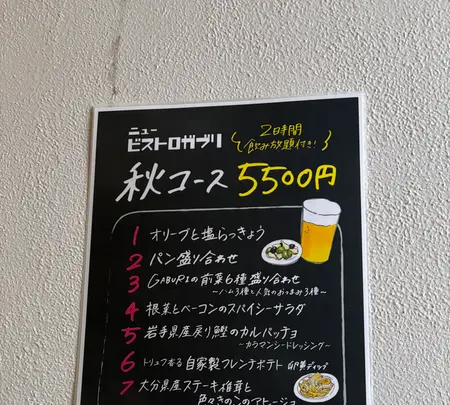 ニュー
ビストロガブリ
2時間
飲み放題付き!
秋コース 5500円
1 オリーブと塩らっきょう
2 パン盛り合わせ
3 GABURIの前菜6種盛り合わせ
～ハム3種と人気のおつまみ3種～
4 根菜とベーコンのスパイシーサラダ
5 岩手県産戻り鰹のカルパッチョ
～カラマンシードレッシング～
6 トリュフ香る 自家製フレンチポテト 明太ディップ
7 大分県産ステーキ椎茸と
色々きのこのアヒージョ